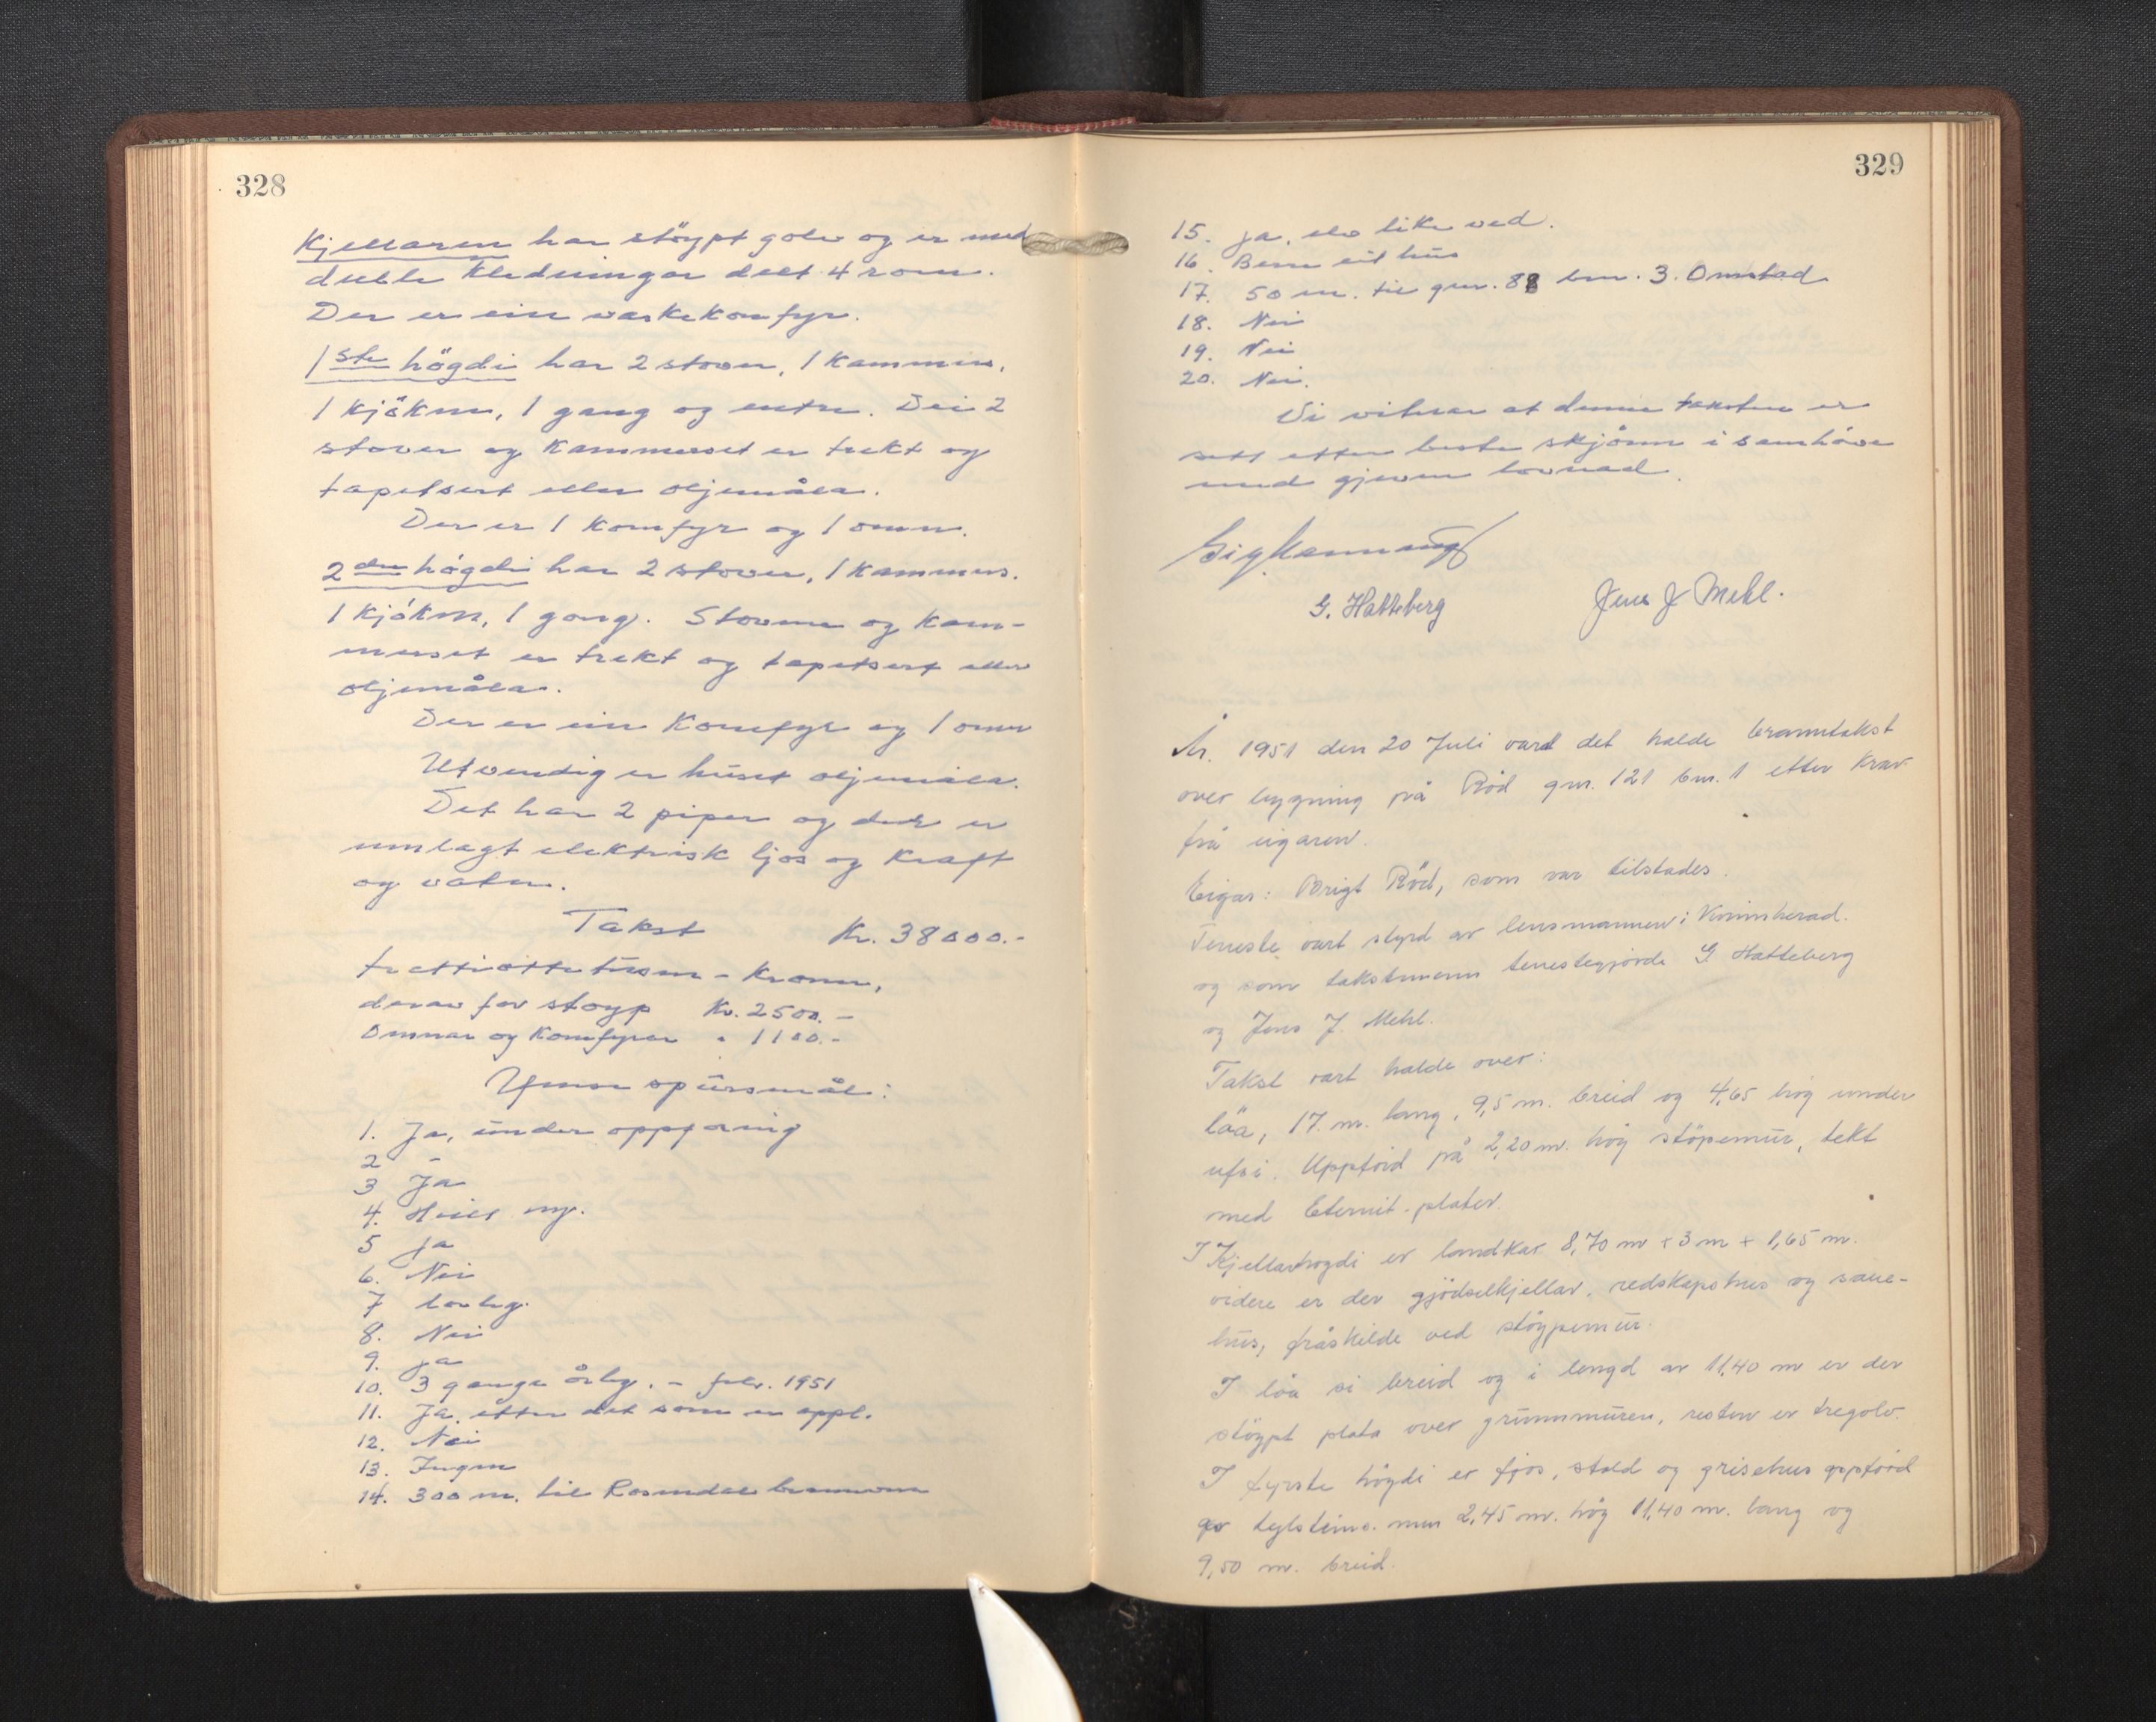 328
Kjellaren har støypt golv og er med
duble kledningar delt 4 rom.
Der er ein vaskekomfyr.
1ste högdi har 2 stover, 1 kammers,
1 kjøken, 1 gang og entre. Dei 2
stover og kammerset er trekt og
tapetsert eller oljemåla.
Der er 1 komfyr og 1 omn.
2den högdi har 2 stover, 1 kammers.
1 kjøken, 1 gang. Stovene og kam-
merset er trekt og tapetsert eller
oljemåla.
Der er ein komfyr og 1 omn
Utvendig er huset oljemåla.
Det har 2 piper og der er
innlagt elektrisk ljos og kraft
og vatn.
Takst Kr. 38000.-
trettiåttetusen - kroner,
derav for støyp Kr. 2500.-
Omnar og komfyrer " 1100.-
Ymse spursmål:
1. Ja, under oppföring
2 -
3 Ja
4. Heilt ny.
5 ja
6. Nei
7 lovleg.
8. Nei
9. ja
10. 3 gange årleg. - febr. 1951
11. Ja, etter det som er oppl.
12. Nei
13. Ingen
14. 300 m. til Rosendal brannvern
329
15. ja, elv like ved.
16. Berre eit hus
17. 50 m. til gnr. 88 bnr. 3. Omstad
18. Nei
19. Nei
20. Nei.
Vi vitnar at denne taksten er
sett etter beste skjønn i samhöve
med gjeven lovnad.
G. Hatteberg Jens J Mehl.
År. 1951 den 20 Juli vart det halde branntakst
over bygning på Röd gnr. 121 bnr. 1 etter krav
frå eigaren.
Eigar: Brigt Röd, som var tilstades.
Teneste vart styrd av lensmannen i Kvinnherad.
og som takstmenn tenestegjorde G Hatteberg
og Jens J. Mehl.
Takst vart halde over:
löa, 17. m. lang, 9,5 m. breid og 4,65 høg under
ufsi. Uppförd på 2,20 m. høg støpemur, tekt
med Eternit-plater.
I Kjellarhogdi er landkar 8,70 m + 3 m + 1,65 m.
videre er der gjödselkjellar, redskapshus og saue-
hus, fråskilde ved støypemur.
I löa si breid og i lengd av 11,40 m er der
støypt plata over grunnmuren, resten er tregolv.
I fyrste högdi er fjos, stald og grisehus oppförd
av teglsteins. mur 2,45 m. høg 11,40 m. lang og
9,50 m. breid.